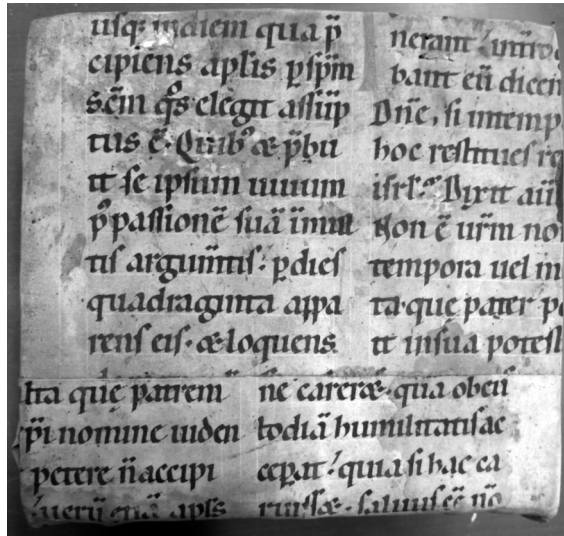 usq; indiem qua p̄
cipiens aplis p̱ spm̄
sc̄m q̊s elegit assūp
tus ē. Quib⁹ & p̄bu
it se ipsum uiuum
p⁹ passionē suā īmul
tis argum̄tis. p̱ dies
quadraginta appa
rens eis. & loquens
nerant intro
bant eū dicen
Dn̄e, si intemp
hoc restitues
isrl̄. Dixit aū
Non ē ur̄m no
tempora uel m
ta que pater po
it insua potest
lta quę patrem
p̄i nomine uiden
petere n̄ accipi
uerū
ne careræ. qua obeū
todiā humilitatis ac
ceperat. quia si hac ca
ruiss&. saluus ēē nō